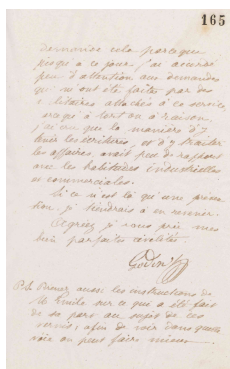 165
demande cela parceque
jusqu'à ce jour j'ai accordé
peu d'attention aux demandes
qui m'ont été faites par des
militaires attachés à ce service,
parcequ'à tort ou à raison,
j'ai cru que la manière d'y
tenir les écritures et d'y traiter
les affaires, avait peu de rapport
avec les habitudes industrielles
et commerciales.
Si ce n'est là qu'une préven
tion, je tiendrais à en revenir.
Agréez je vous prie mes
bien parfaites civilités
Godin
P.S. Prenez aussi les instructions de
M. Émile sur ce qui a été fait
de sa part au sujet de ces
vernis, afin de voir dans quelle
voie on peut faire mieux.